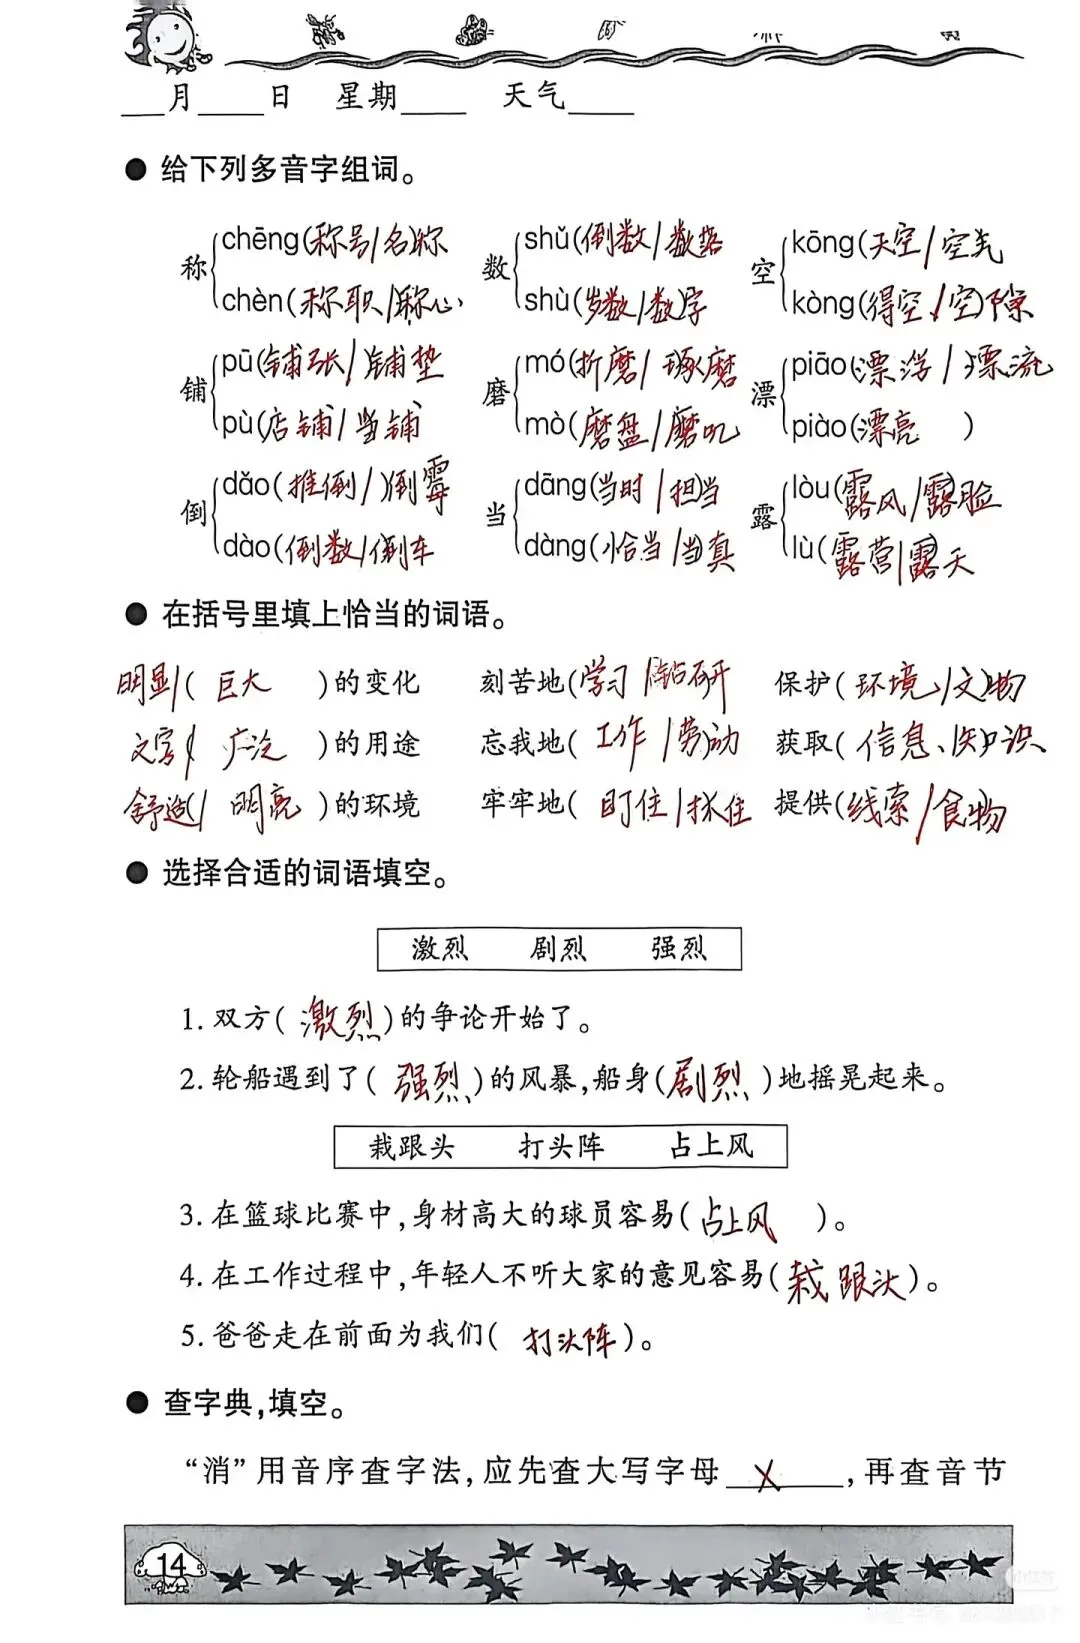 ___月____日 星期____ 天气____
● 给下列多音字组词。
称 chēng(称号/名)称 数 shǔ(倒数/数落 空 kōng(天空/空气
chèn(称职/称)心 shù(岁数/数)字 kòng(得空/空)隙
铺 pū(铺张/铺垫 磨 mó(折磨/琢磨 漂 piāo(漂浮/漂流
pù(店铺/当铺 mò(磨盘/磨叽 piào(漂亮 )
倒 dǎo(推倒/)倒霉 当 dāng(当时/担)当 露 lòu(露风/露)脸
dào(倒数/倒车 dàng(恰当/当)真 lù(露营/露)天
● 在括号里填上恰当的词语。
明显/( 巨大 )的变化 刻苦地(学习/钻)研 保护(环境/文)物
文字( 广泛 )的用途 忘我地( 工作/劳)动 获取(信息、知)识
舒适(/ 明亮 )的环境 牢牢地( 盯住/抓住 提供(线索/食物
● 选择合适的词语填空。
激烈 剧烈 强烈
1. 双方( 激烈 )的争论开始了。
2. 轮船遇到了( 强烈 )的风暴,船身(剧烈 )地摇晃起来。
栽跟头 打头阵 占上风
3. 在篮球比赛中,身材高大的球员容易(占上风 )。
4. 在工作过程中,年轻人不听大家的意见容易(栽跟头)。
5. 爸爸走在前面为我们( 打头阵 )。
● 查字典,填空。
“消”用音序查字法,应先查大写字母 X ,再查音节
14